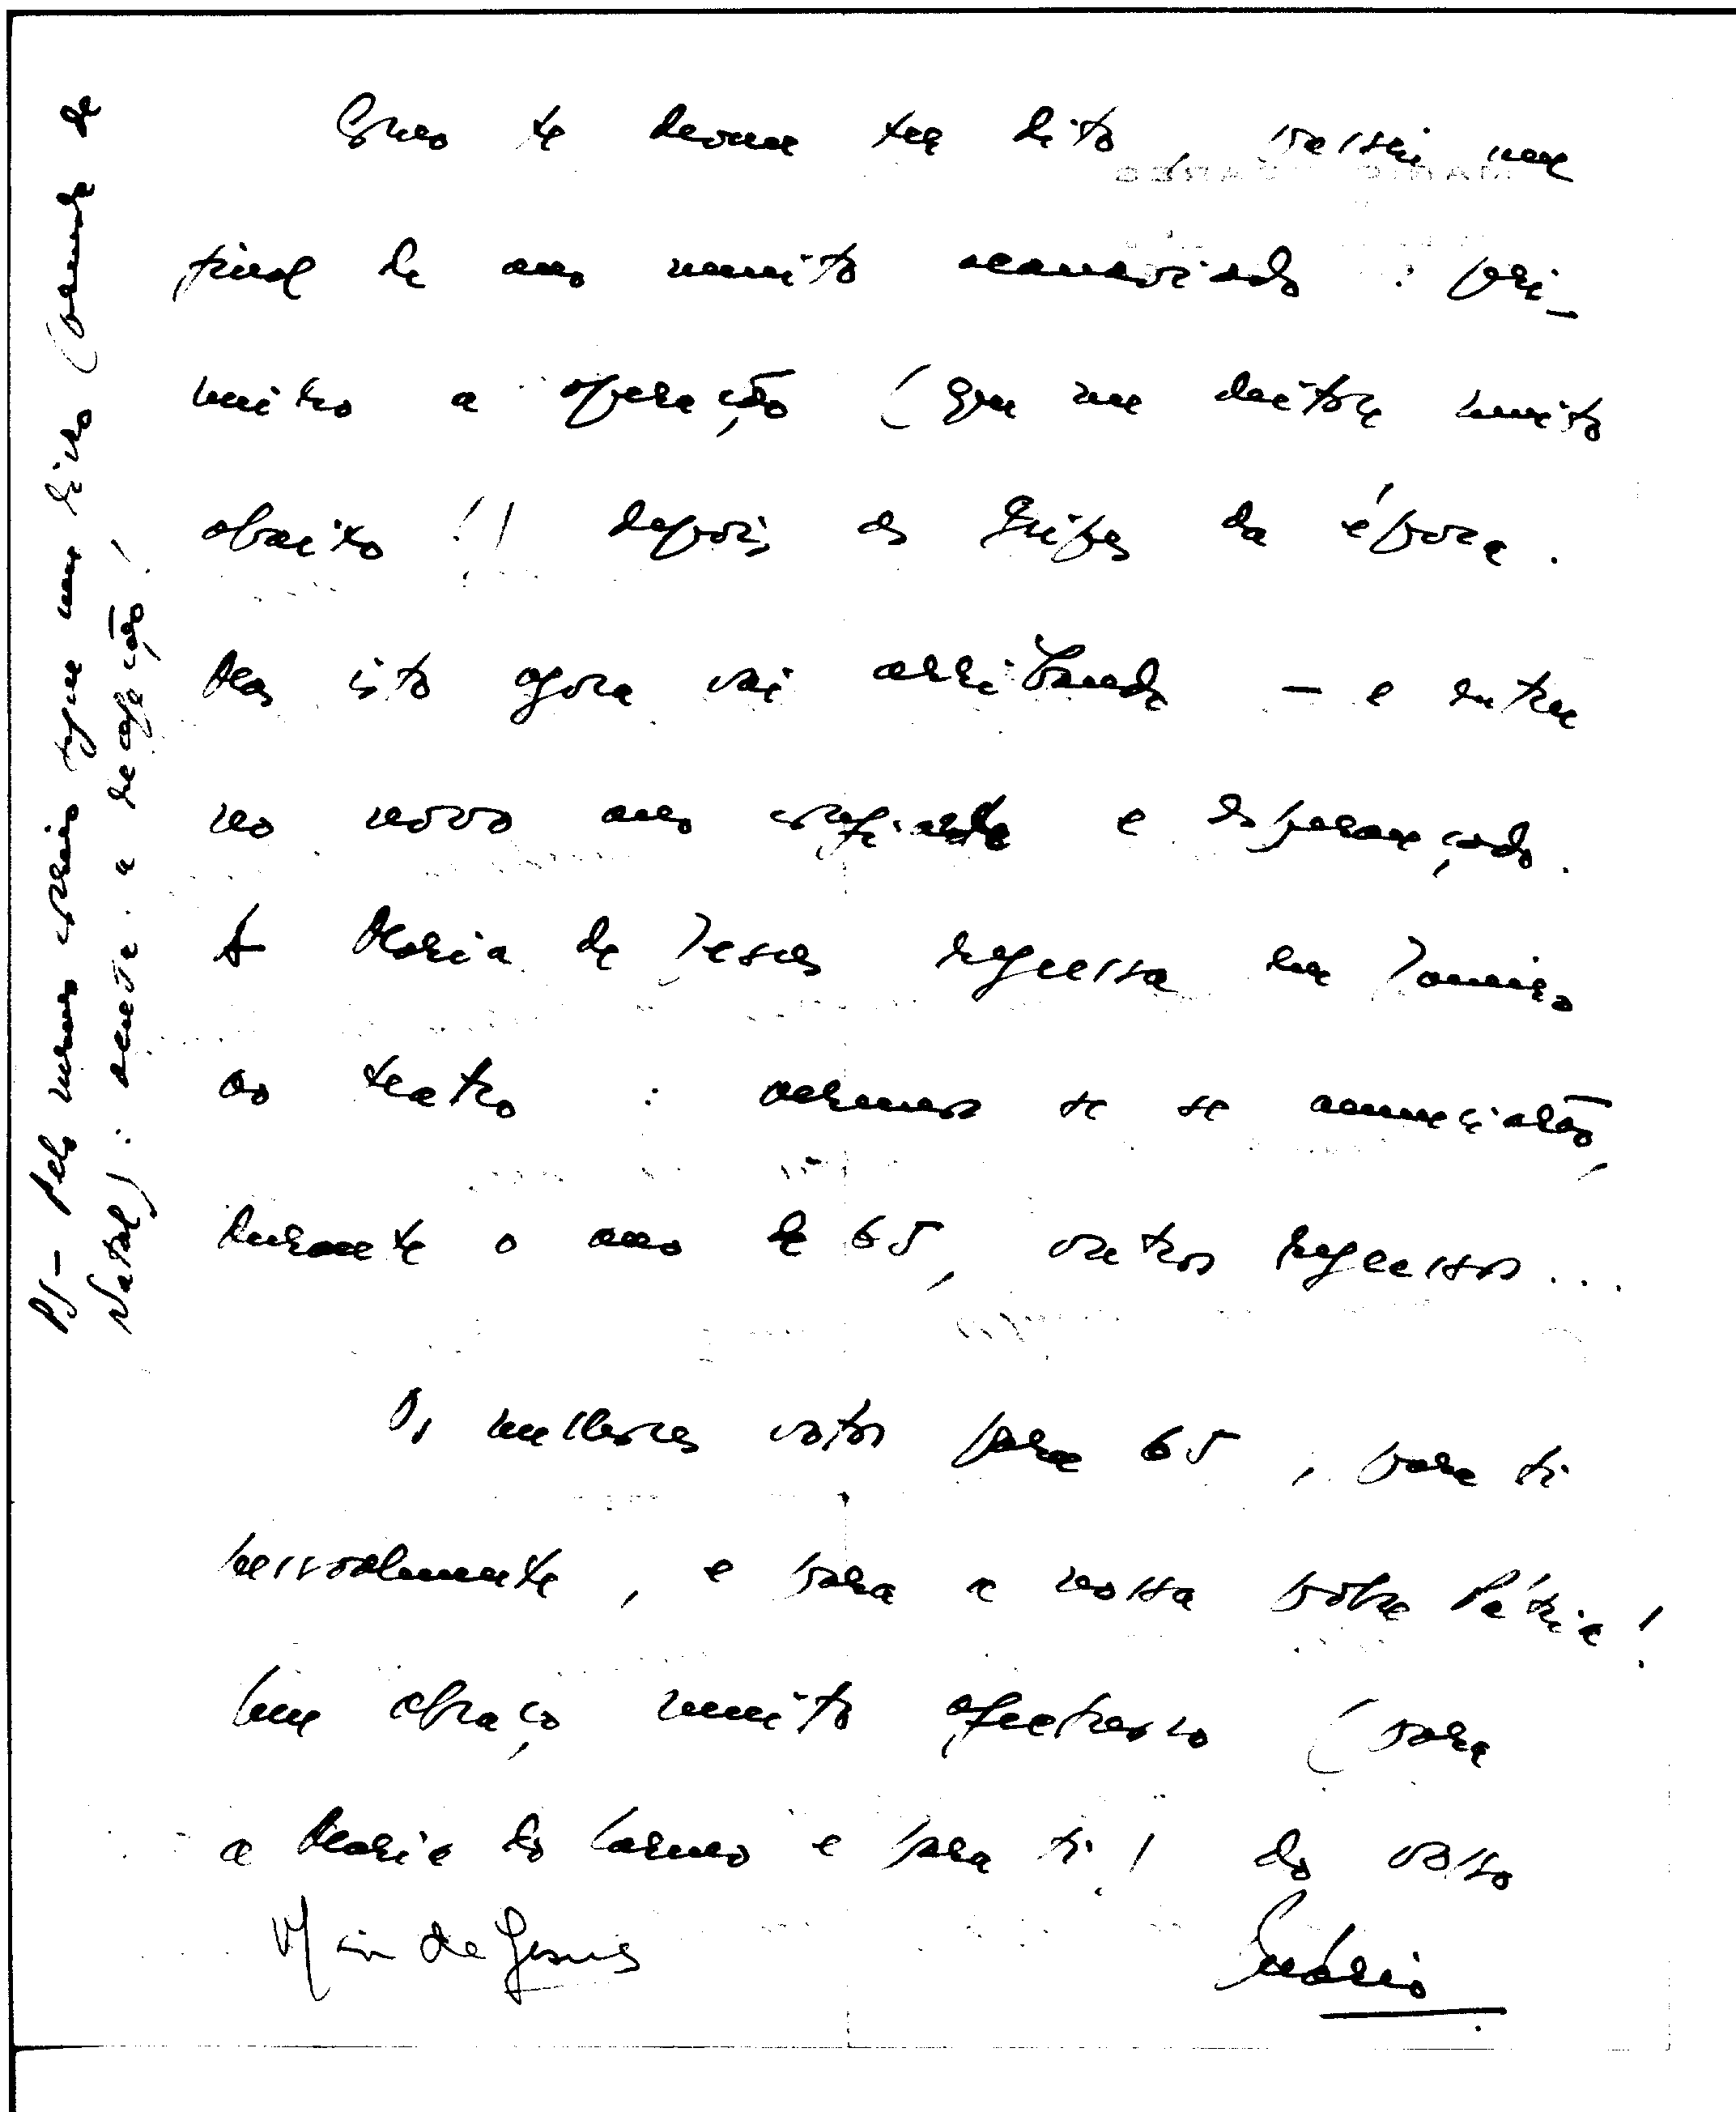 Como te devem ter dito, passei um
final de ano muito acanaviado: pri-
meiro a operação (que me deitou muito
abaixo!) depois as gripes da época.
Mas isto agora vai arribando — e entrei
no novo ano confiante e esperançado.
A Maria de Jesus regressa em Janeiro
ao teatro: veremos se se anunciarão,
durante o ano de 65, outros regressos...
Os melhores votos para 65, para ti
pessoalmente, e para a nossa pobre Pátria!
Um abraço muito afectuoso (para
a Maria do Carmo e para ti) do vosso
Mário
Mia de Jesus
PS — Pelo mesmo correio segue um livro (lembrança de
Natal): acusa a recepção!
MARIO SOARES